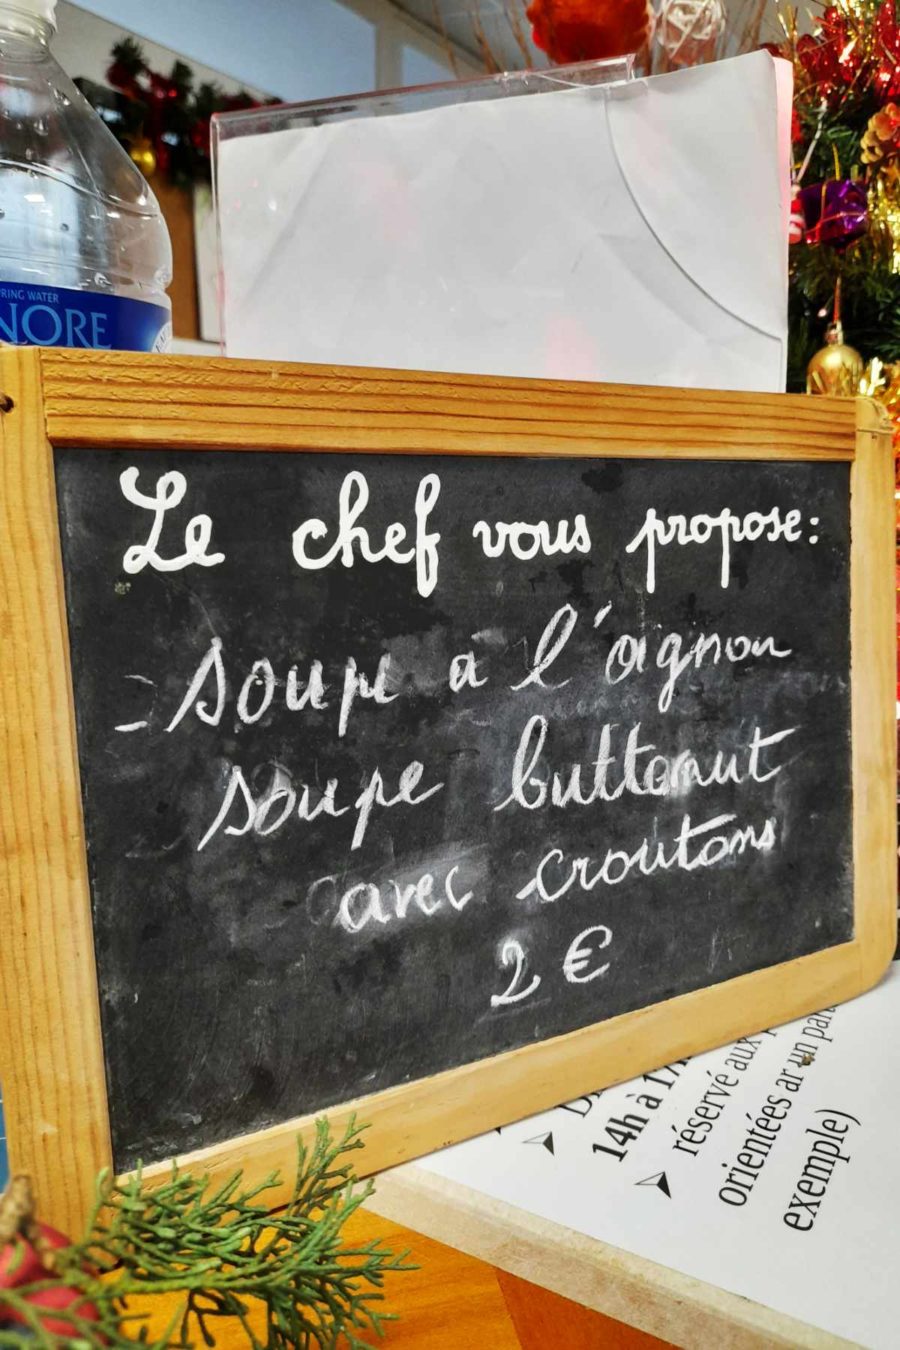 RING WATER
NORE
Le chef vous propose:
- soupe à l'oignon
soupe butternut
avec croutons
2 €
14h à 17
réservé aux
orientées ar un par
exemple)